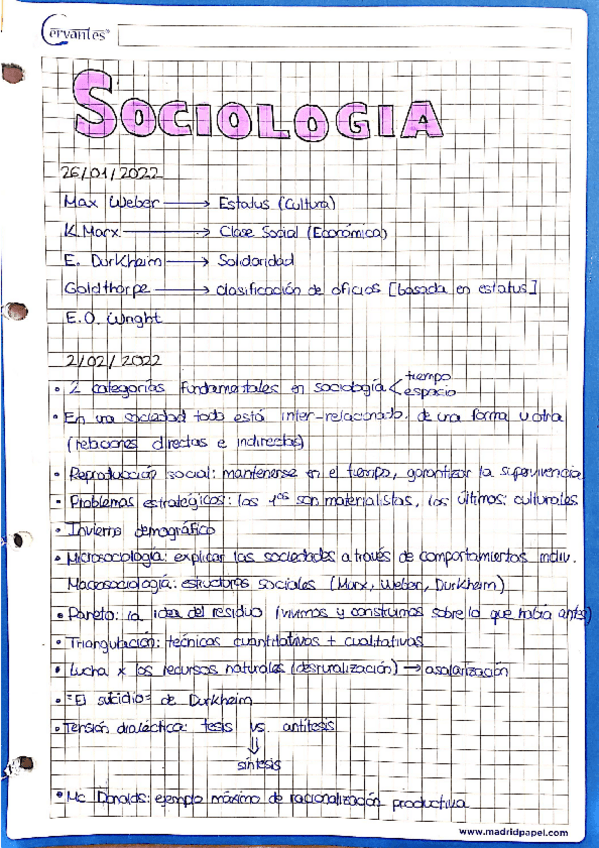 Cervantes®
SOCIOLOGIA
26/01/2022
Max Weber → Estatus (Cultura)
K. Marx → Clase Social (Económica)
E. Durkheim → Solidaridad
Goldthorpe → clasificación de oficios [basada en estatus]
E.O. Wright
2/02/2022
• 2 categorías fundamentales en sociología < tiempo
espacio
• En una sociedad todo está inter-relacionado de una forma u otra
(relaciones directas e indirectas)
• Reproducción social: mantenerse en el tiempo, garantizar la supervivencia
• Problemas estratégicos: los 1os son materialistas, los últimos: culturales
• Invierno demográfico
• Microsociología: explicar las sociedades a través de comportamientos indiv.
Macrosociología: estructuras sociales (Marx, Weber, Durkheim)
• Pareto: la idea del residuo (vivimos y construimos sobre lo que había antes)
• Triangulación: técnicas cuantitativas + cualitativas
• Lucha x los recursos naturales (desruralización) → asalarización
• "El suicidio" de Durkheim
• Tensión dialéctica: tesis vs. antítesis
⇓
síntesis
• Mc Donalds: ejemplo máximo de racionalización productiva
www.madridpapel.com